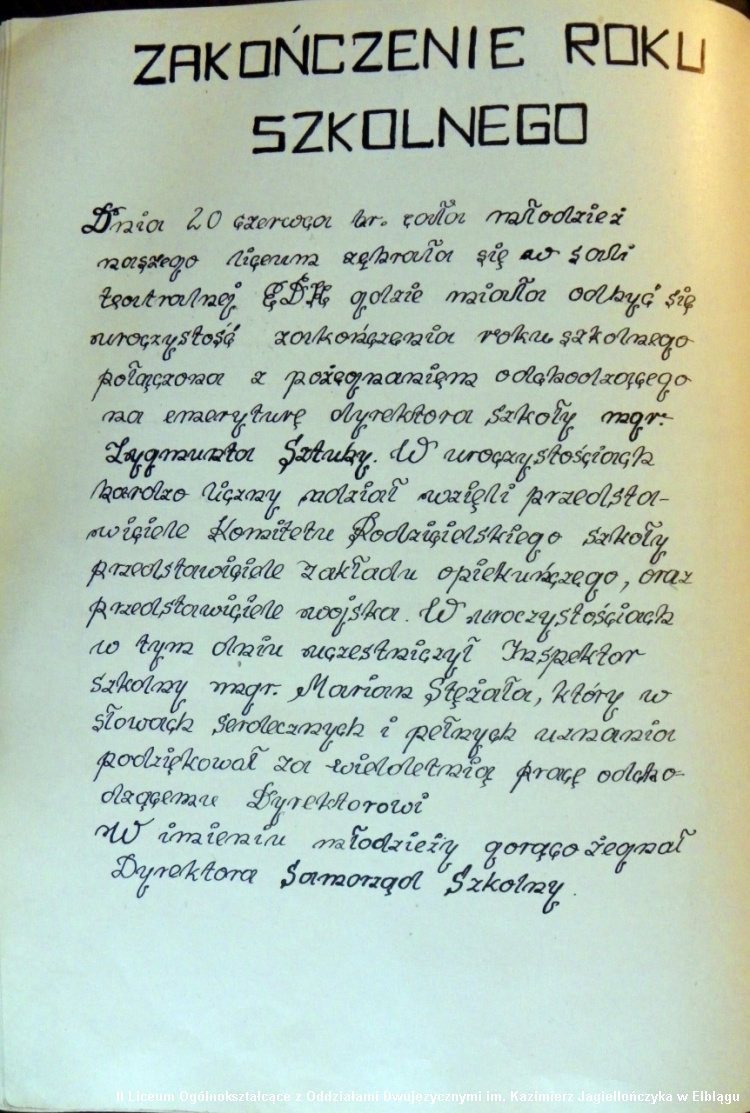 ZAKOŃCZENIE ROKU
SZKOLNEGO
Dnia 20 czerwca br. cała młodzież
naszego liceum zebrała się w sali
teatralnej GDK gdzie miała odbyć się
uroczystość zakończenia roku szkolnego
połączona z pożegnaniem odchodzącego
na emeryturę dyrektora szkoły mgr.
Zygmunta Sztuby. W uroczystościach
bardzo liczny udział wzięli przedsta-
wiciele Komitetu Rodzicielskiego szkoły
przedstawiciele zakładu opiekuńczego, oraz
przedstawiciele wojska. W uroczystościach
w tym dniu uczestniczył Inspektor
szkolny mgr. Marian Stężała, który w
słowach serdecznych i pełnych uznania
podziękował za wieloletnią pracę odcho-
dzącemu Dyrektorowi
W imieniu młodzieży gorąco żegnał
Dyrektora Samorząd Szkolny.
II Liceum Ogólnokształcące z Oddziałami Dwujęzycznymi im. Kazimierz Jagiellończyka w Elblągu